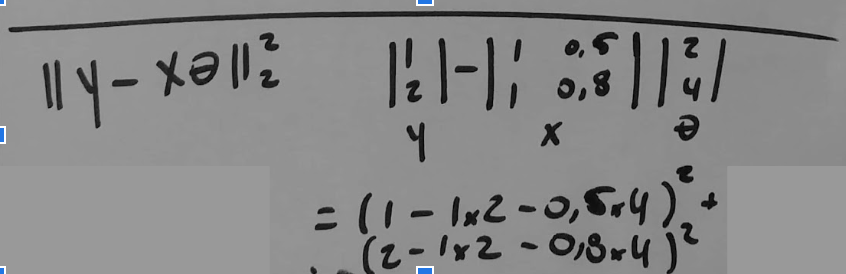 ||y - xθ||₂² |1 2| - |1 0,5 1 0,8| |2 4|
y x θ
= (1 - 1x2 - 0,5x4)² +
(2 - 1x2 - 0,8x4)²